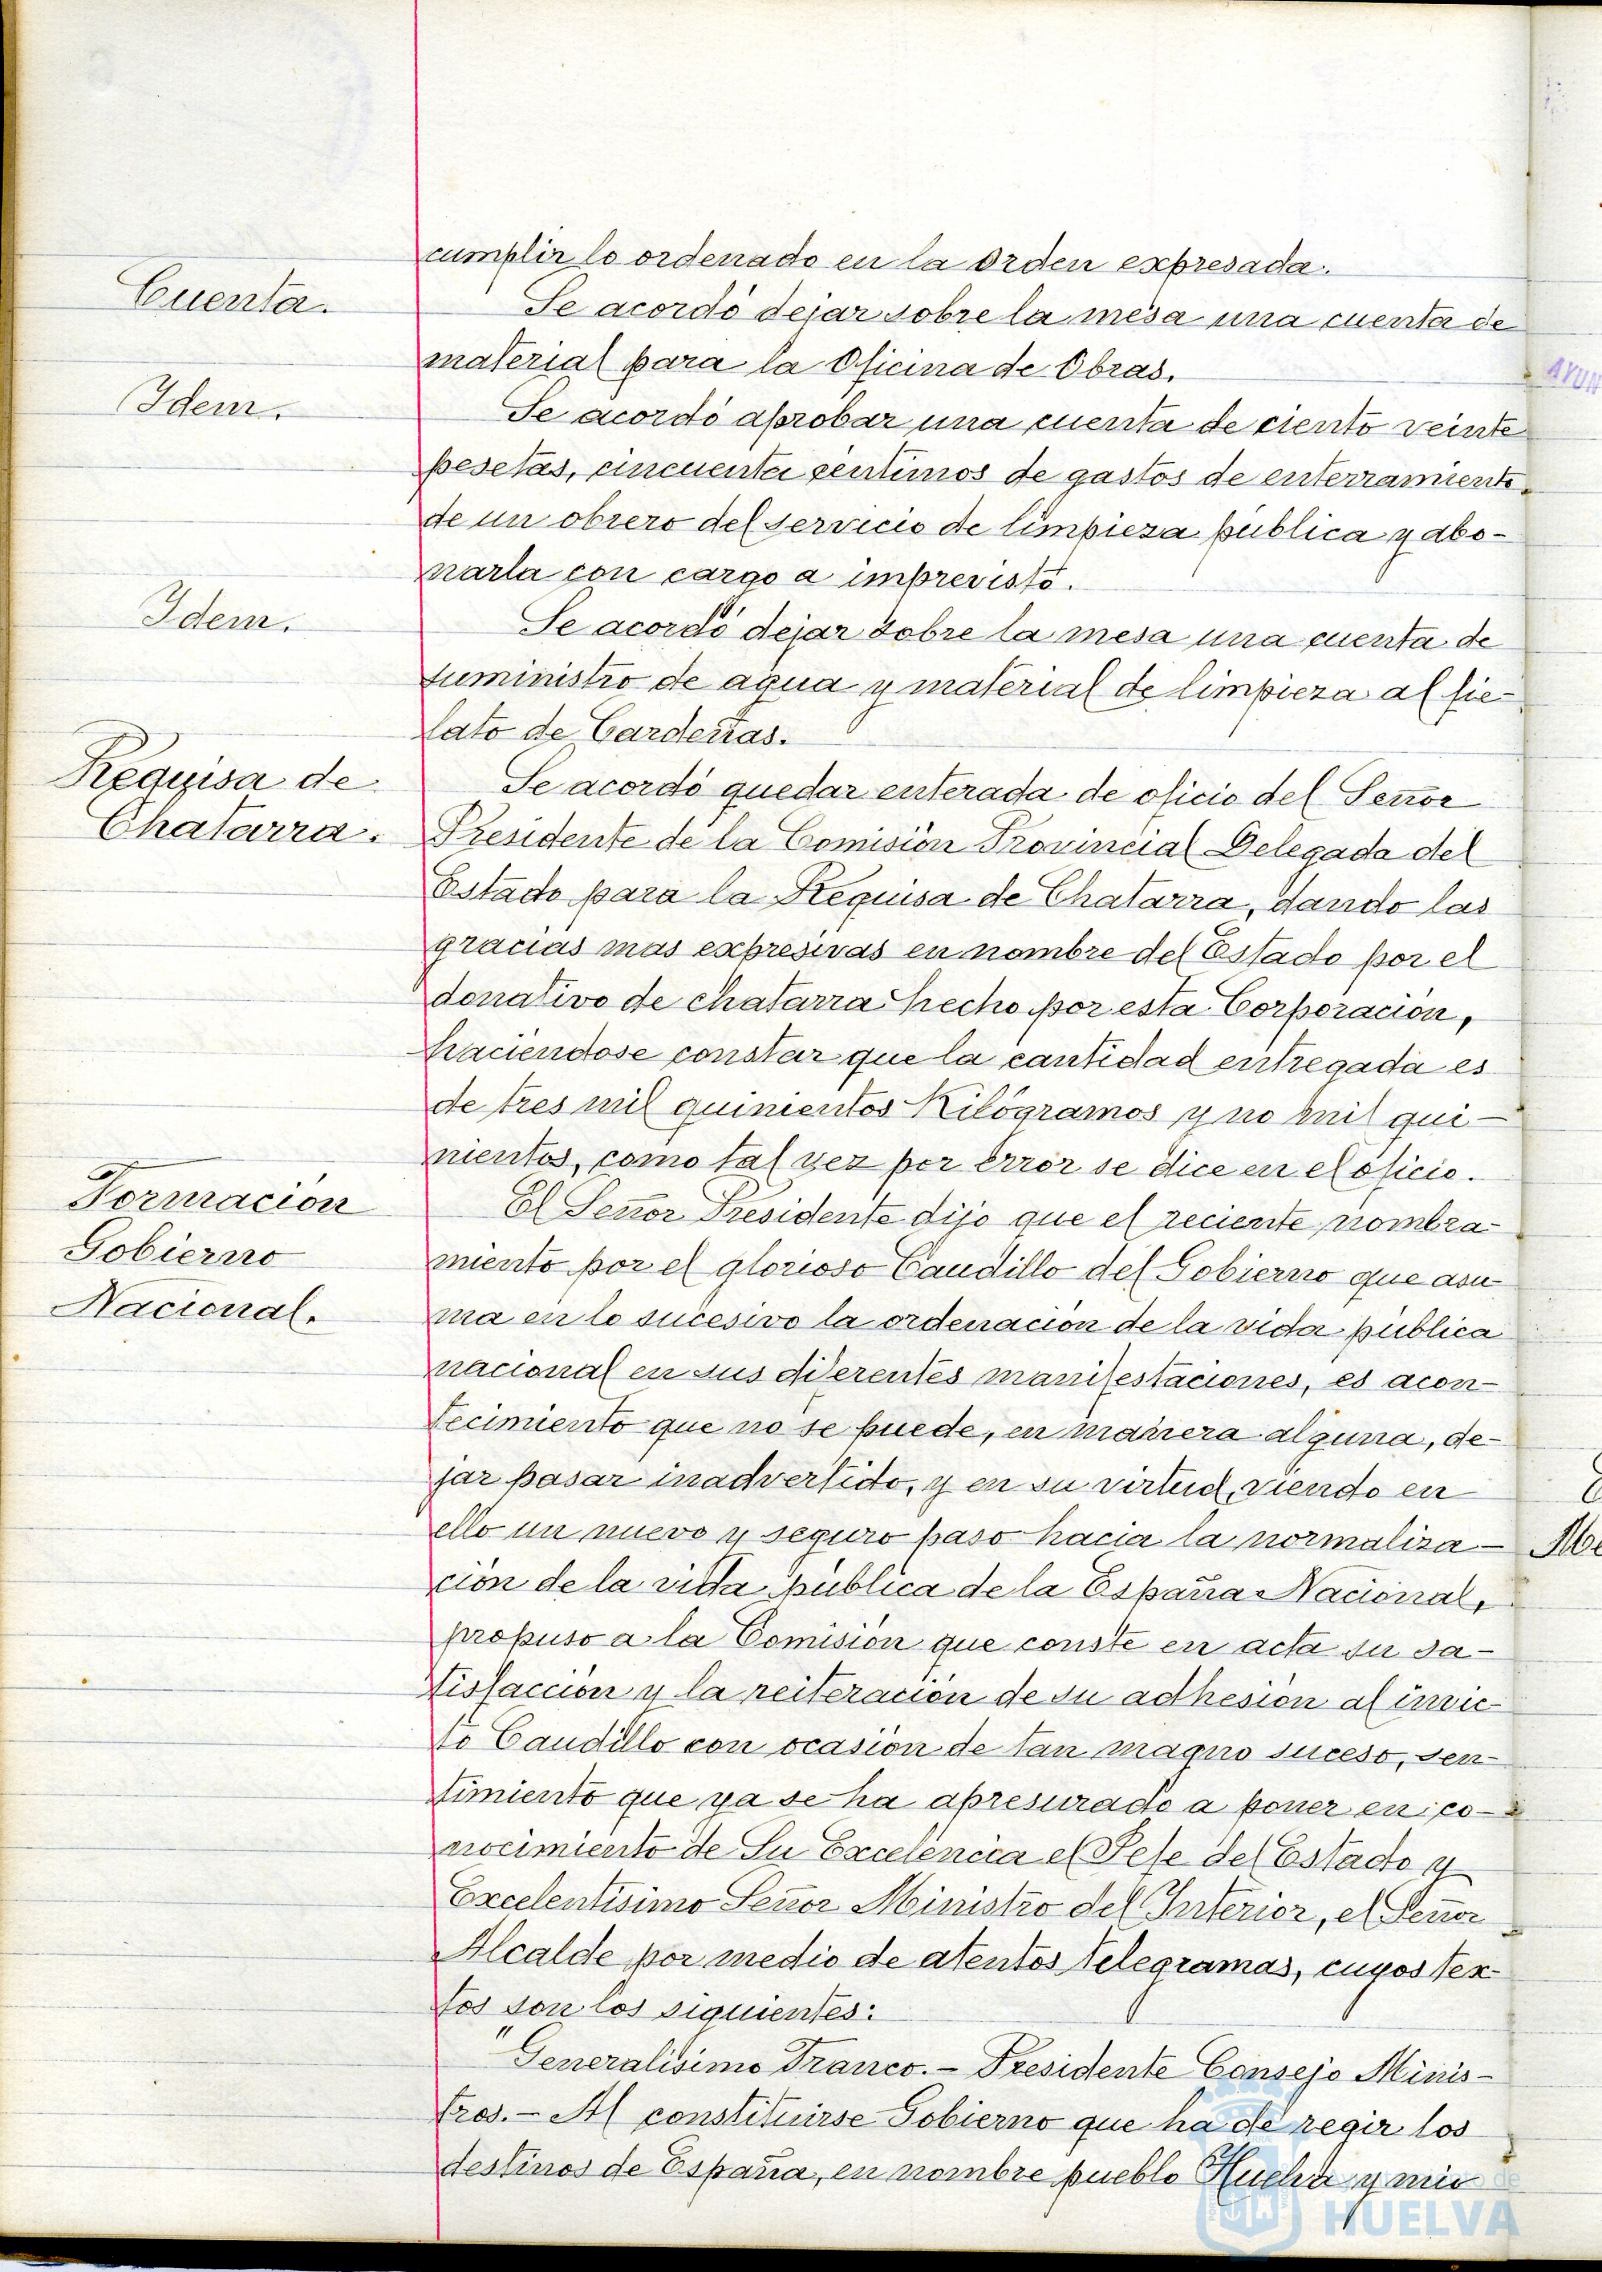 cumplir lo ordenado en la orden expresada.
Cuenta.
Se acordó dejar sobre la mesa una cuenta de
material para la Oficina de Obras.
Idem.
Se acordó aprobar una cuenta de ciento veinte
pesetas, cincuenta centimos de gastos de enterramiento
de un obrero del servicio de limpieza pública y abo-
narla con cargo a imprevisto.
Idem.
Se acordó dejar sobre la mesa una cuenta de
suministro de agua y material de limpieza al fie-
lato de Cardeñas.
Requisa de
Chatarra.
Se acordó quedar enterada de oficio del Señor
Presidente de la Comisión Provincial Delegada del
Estado para la Requisa de Chatarra, dando las
gracias mas expresivas en nombre del Estado por el
donativo de chatarra hecho por esta Corporación,
haciéndose constar que la cantidad entregada es
de tres mil quinientos Kilógramos y no mil qui-
nientos, como tal vez por error se dice en el oficio.
Formación
Gobierno
Nacional.
El Señor Presidente dijo que el reciente nombra-
miento por el glorioso Caudillo del Gobierno que asu-
ma en lo sucesivo la ordenación de la vida pública
nacional en sus diferentes manifestaciones, es acon-
tecimiento que no se puede, en manera alguna, de-
jar pasar inadvertido, y en su virtud, viendo en
ello un nuevo y seguro paso hacia la normaliza-
ción de la vida pública de la España Nacional,
propuso a la Comisión que conste en acta su sa-
tisfacción y la reiteración de su adhesión al invic-
to Caudillo con ocasión de tan magno suceso, sen-
timiento que ya se ha apresurado a poner en co-
nocimiento de Su Excelencia el Jefe del Estado y
Excelentísimo Señor Ministro del Interior, el Señor
Alcalde por medio de atentos telegramas, cuyos tex-
tos son los siguientes:
"Generalísimo Franco.- Presidente Consejo Minis-
tros.- Al constituirse Gobierno que ha de regir los
destinos de España, en nombre pueblo Huelva y mio
HUELVA
AYUN